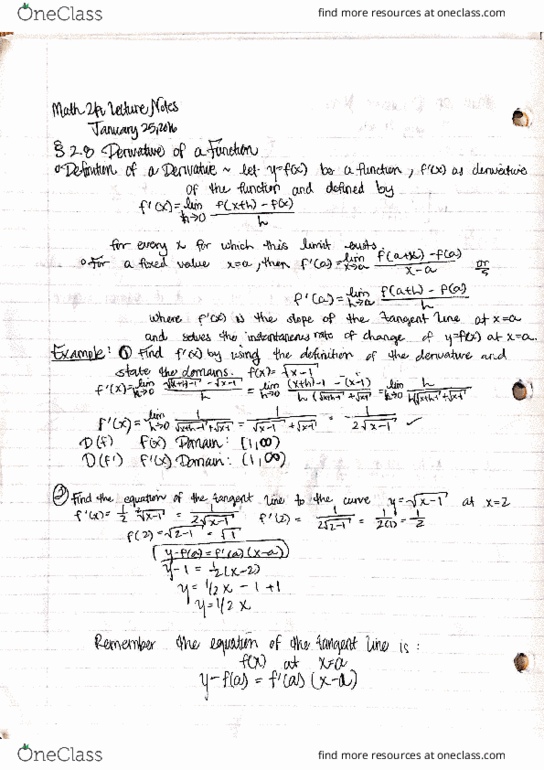 OneClass find more resources at oneclass.com
Math 2A Lecture Notes
January 25, 2016
§ 2.8 Derivative of a Function
Definition of a Derivative ~ let y=f(x) be a function, f'(x) as derivative
of the function and defined by
f'(x) = lim h→0 f(x+h) - f(x) / h
for every x for which this limit exists.
For a fixed value x=a, then f'(a) = lim x→a f(a+x) - f(a) / x-a or
f'(a) = lim h→0 f(a+h) - f(a) / h
where f'(x) is the slope of the tangent line at x=a
and solves the instantaneous rate of change of y=f(x) at x=a.
Example: ① Find f'(x) by using the definition of the derivative and
state the domains. f(x)= √x-1
f'(x) = lim h→0 √(x+h)-1 - √x-1 / h = lim h→0 (x+h)-1 - (x-1) / h(√x+h-1 + √x-1) = lim h→0 h / h(√x+h-1 + √x-1)
f'(x) = lim h→0 1 / √x+h-1 + √x-1 = 1 / √x-1 + √x-1 = 1 / 2√x-1 ✓
D(f) f(x) Domain: [1,∞)
D(f') f'(x) Domain: (1,∞)
② Find the equation of the tangent line to the curve y=√x-1 at x=2
f'(x) = 1/2 √x-1 = 1 / 2√x-1 f'(2) = 1 / 2√2-1 = 1 / 2(1) = 1/2
f(2) = √2-1 = √1
y-f(a) = f'(a) (x-a)
y-1 = 1/2 (x-2)
y = 1/2 x - 1 + 1
y = 1/2 x
Remember the equation of the tangent line is:
f(x) at x=a
y-f(a) = f'(a) (x-a)
OneClass find more resources at oneclass.com